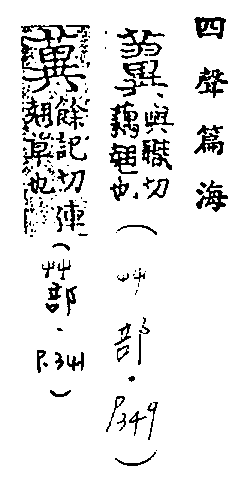 四聲篇海
與職切
翹也
(艸部.P.349)
餘記切連
翹草也
(艸部.P.341)